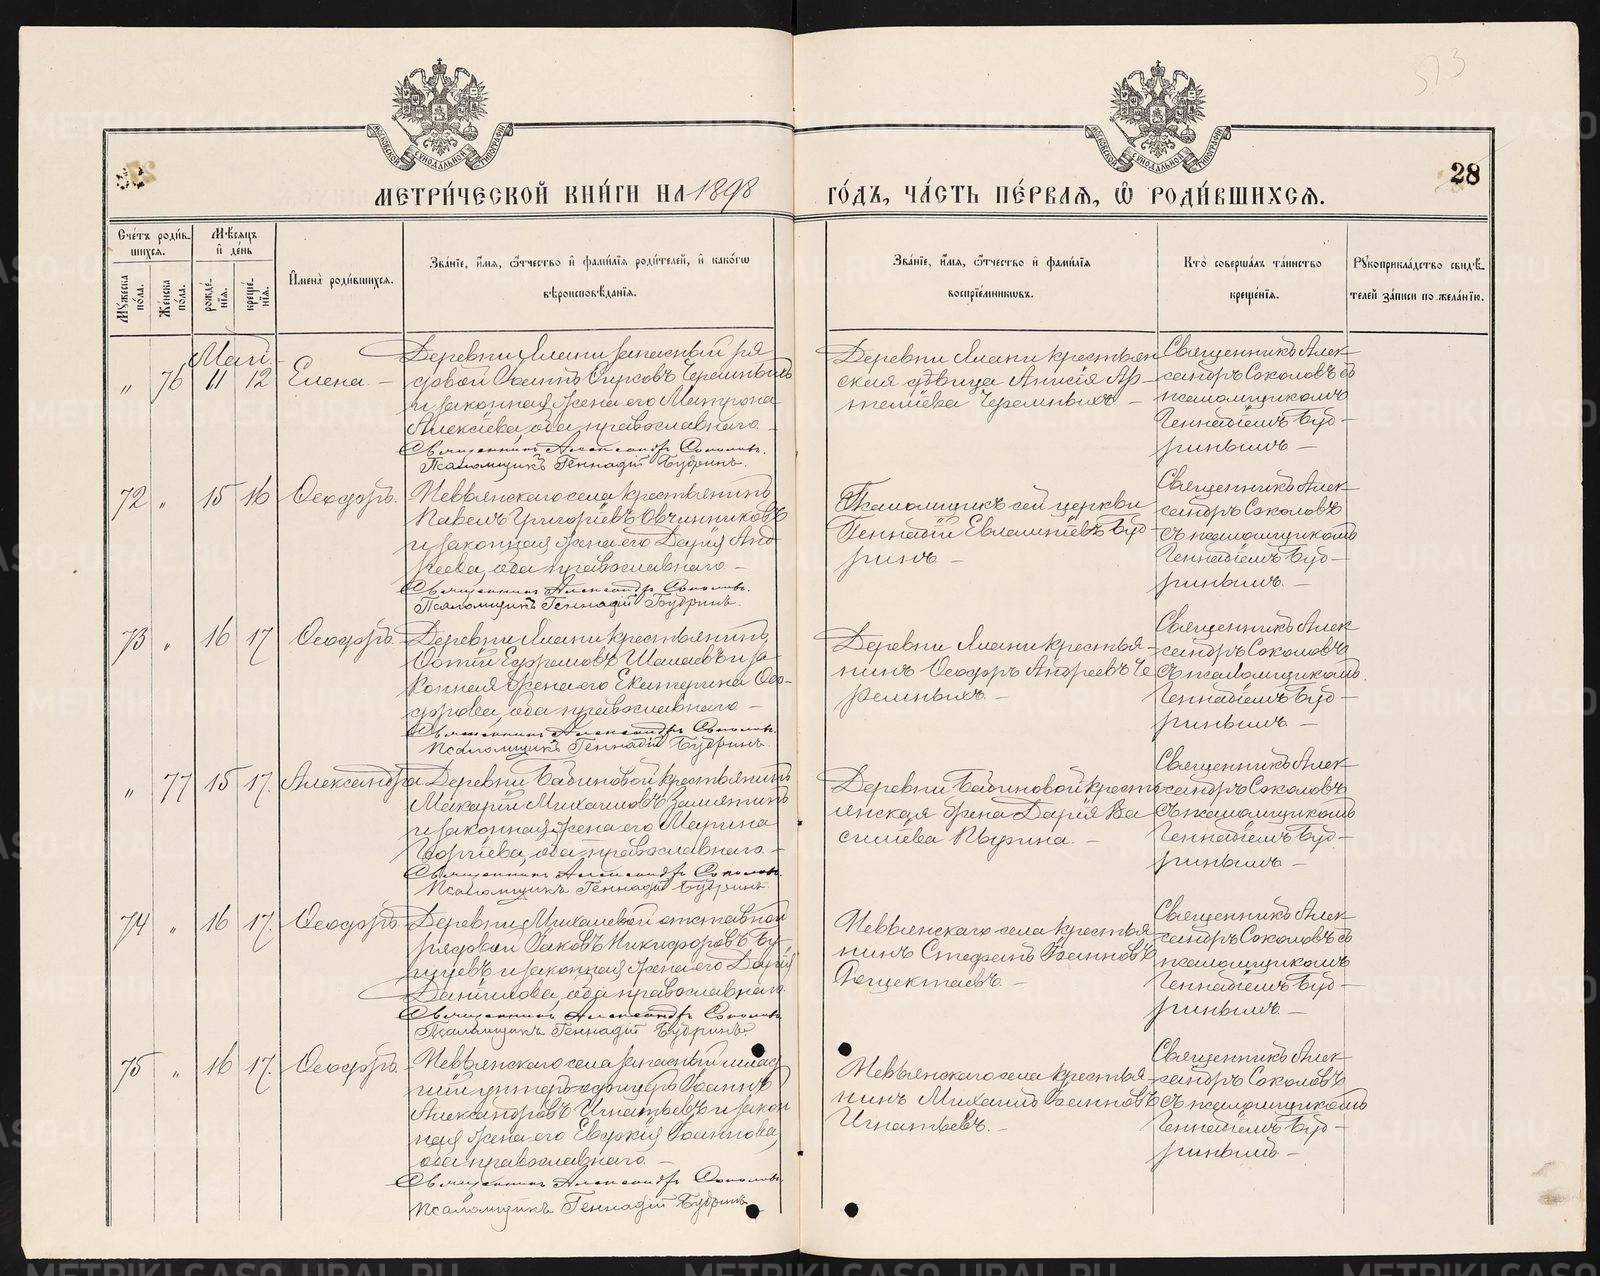 573
28
МЕТРИ́ЧЕСКОЙ КНИ́ГИ НА 1898 ГО́ДЪ, ЧА́СТЬ ПЕ́РВАЯ, Ѽ РОДИ́ВШИХСЯ.
Сче́тъ роди́в-
шихся.
Мужеска по́ла.
Же́нска по́ла.
Мѣ́сяцъ
и҆ де́нь
рожде́-
нїѧ.
креще́-
нїѧ.
И҆мена̀ роди́вшихся.
Зва́нїе, и҆́мя, ѻ҆́тчество и҆ фами́лїя роди́телей, и҆ како́гѡ
вѣроисповѣ́данїя.
Зва́нїе, и҆́мя, ѻ҆́тчество и҆ фами́лїя
воспрїе́мниковъ.
Кто̀ соверша́лъ та́инство
креще́нїя.
Рукоприкла́дство свидѣ́-
телей за́писи по жела́нїю.
Май.
„ 76 11 12 Елена. —
Деревни Ялани запасный ря
довой Іоаннъ Черемныхъ
и законная жена его Матрона
Алексіева, оба православнаго. —
Священникъ Александръ Соколовъ.
Псаломщикъ Геннадій Будринъ.
Деревни Ялани крестьян
ская дѣвица Анисія Ар-
теміева Черемныхъ —
Священникъ Алек-
сандръ Соколовъ съ
псаломщикомъ
Геннадіемъ Буд-
ринымъ —
72 „ 15 16 Ѳеодоръ.
Невьянскаго села крестьянинъ
Павелъ Григоріевъ Овчинниковъ
и законная жена его Дарія Анд
реева, оба православнаго. —
Священникъ Александръ Соколовъ.
Псаломщикъ Геннадій Будринъ.
Псаломщикъ сей церкви
Геннадій Евлампіевъ Буд
ринъ —
Священникъ Алек-
сандръ Соколовъ
съ псаломщикомъ
Геннадіемъ Буд-
ринымъ. —
73 „ 16 17 Ѳеодоръ.
Деревни Ялани крестьянинъ
Фотій Ефремовъ Шалаевъ и за
конная жена его Екатерина Ѳео-
дорова, оба православнаго —
Священникъ Александръ Соколовъ.
Псаломщикъ Геннадій Будринъ.
Деревни Ялани крестья-
нинъ Ѳеодоръ Андреевъ Че
ремныхъ —
Священникъ Алек
сандръ Соколовъ
съ псаломщикомъ
Геннадіемъ Буд-
ринымъ —
„ 77 15 17. Александра
Деревни Бабиновой крестьянинъ
Макарій Михаиловъ Замятинъ
и законная жена его Марина
Георгіева, оба православнаго. —
Священникъ Александръ Соколовъ.
Псаломщикъ Геннадій Будринъ.
Деревни Бабиновой кресть-
янская жена Дарія Ва
силіева Пырина. —
Священникъ Алек
сандръ Соколовъ
съ псаломщикомъ
Геннадіемъ Буд-
ринымъ —
74 „ 16 17. Ѳеодоръ
Деревни отставной
рядовой Іаковъ Никифоровъ
и законная жена его Дарія
Даніилова, оба православнаго.
Священникъ Александръ Соколовъ
Псаломщикъ Геннадій Будринъ.
Невьянскаго села крестья
нинъ Стефанъ Іоанновъ
Священникъ Алек-
сандръ Соколовъ съ
псаломщикомъ
Геннадіемъ Буд-
ринымъ —
75 „ 16 17. Ѳеодоръ.
Невьянскаго села запасный млад
шій унтеръ-офицеръ Іоаннъ
Александровъ Игнатьевъ и закон
ная жена его Евдокія Іоаннова,
оба православнаго. —
Священникъ Александръ Соколовъ
Псаломщикъ Геннадій Будринъ
Невьянскаго села крестья-
нинъ Михаилъ Іоанновъ
Игнатьевъ. —
Священникъ Алек
сандръ Соколовъ
съ псаломщикомъ
Геннадіемъ Буд-
ринымъ —